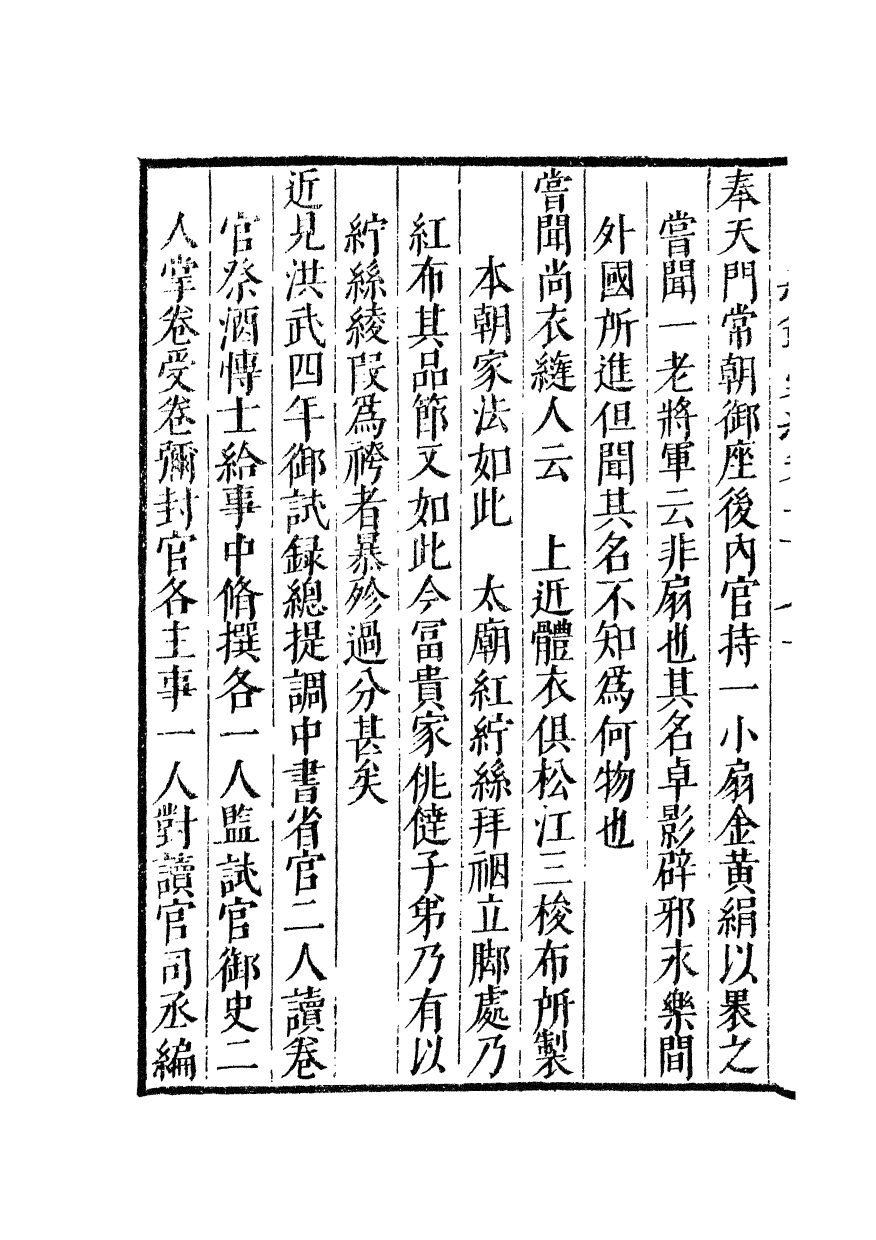 奉天門常朝御座後內官持一小扇金黃絹以褁之
嘗聞一老將軍云非扇也其名卓影辟邪永樂間
外國所進但聞其名不知爲何物也
嘗聞尚衣縫人云　上近體衣俱松江三梭布所製
本朝家法如此　太廟紅紵絲拜裀立脚處乃
紅布其品節又如此今冨貴家佻㒓子弟乃有以
紵絲綾叚爲袴者暴殄過分甚矣
近見洪武四年御試録總提調中書省官二人讀卷
官祭酒愽士給事中脩撰各一人監試官御史二
人掌卷受卷彌封官各主事一人對讀官司丞編